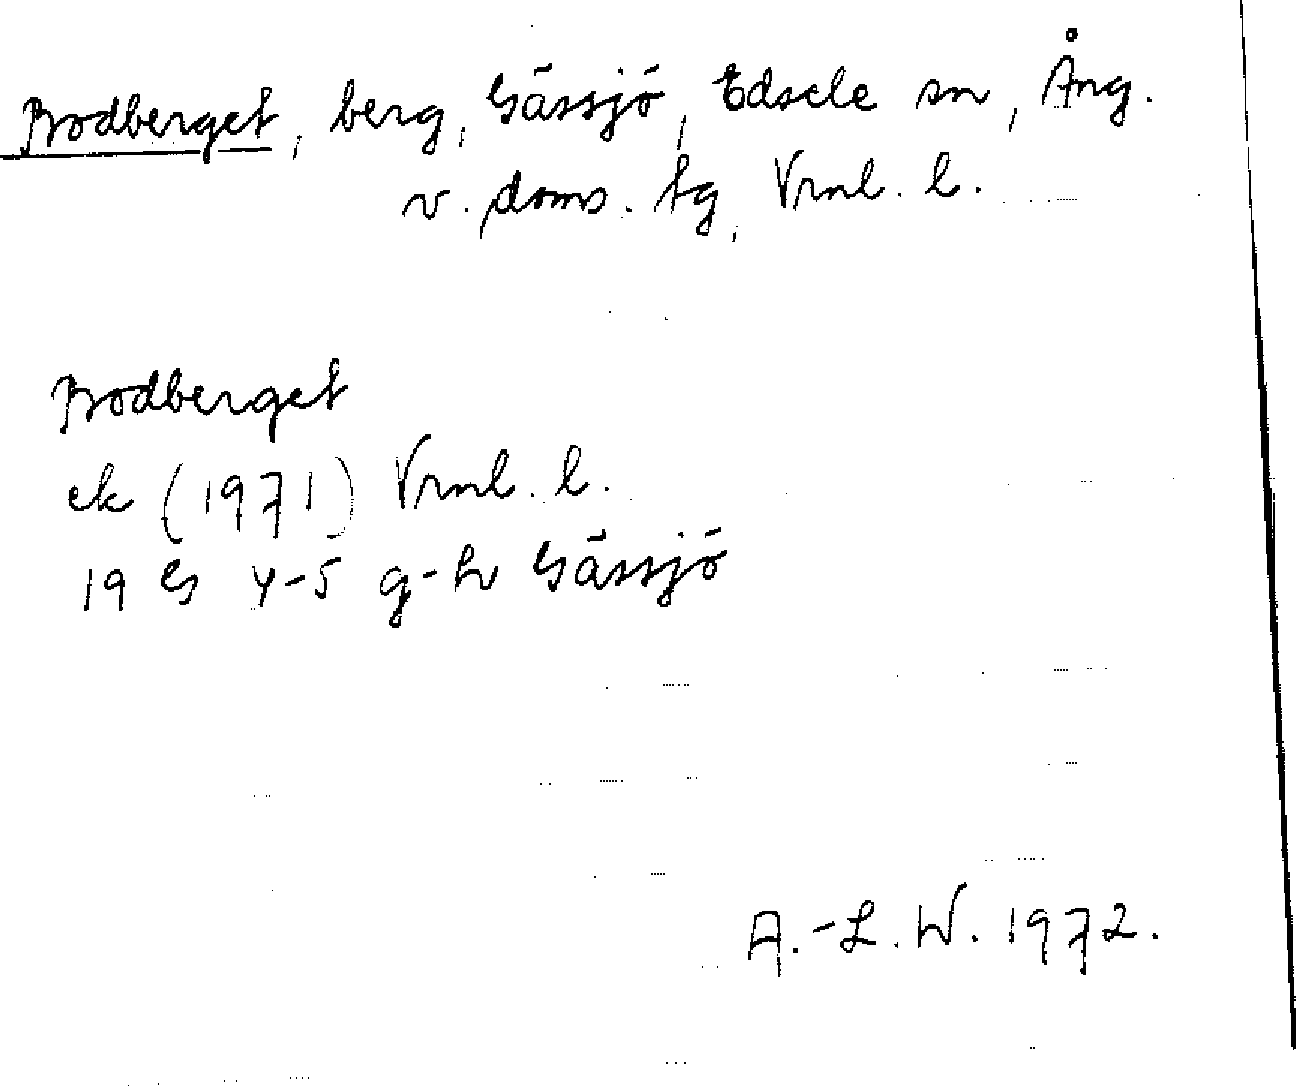 Bodberget, berg, Gässjö, Edsele sn, Ång.
v. doms. fg, Vrml. l.
Bodberget
ek (1971) Vrml. l.
19 G 4-5 g-h Gässjö
A.-L. W. 1972.